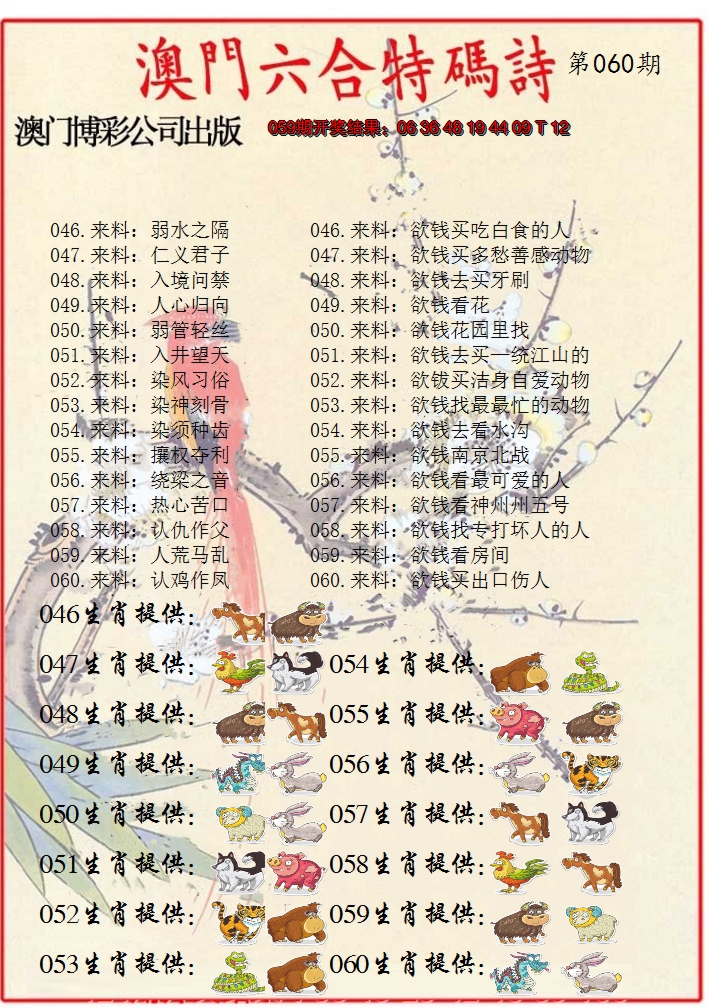 澳門六合特碼詩 第060期
澳门博彩公司出版 059期开奖结果：06 36 48 19 44 09 T 12
046.来料：弱水之隔 046.来料：欲钱买吃白食的人
047.来料：仁义君子 047.来料：欲钱买多愁善感动物
048.来料：入境问禁 048.来料：欲钱去买牙刷
049.来料：人心归向 049.来料：欲钱看花
050.来料：弱管轻丝 050.来料：欲钱花园里找
051.来料：入井望天 051.来料：欲钱去买一统江山的
052.来料：染风习俗 052.来料：欲钹买洁身自爱动物
053.来料：染神刻骨 053.来料：欲钱找最最忙的动物
054.来料：染须种齿 054.来料：欲钱去看水沟
055.来料：攘权夺利 055.来料：欲钱南京北战
056.来料：绕梁之音 056.来料：欲钱看最可爱的人
057.来料：热心苦口 057.来料：欲钱看神州州五号
058.来料：认仇作父 058.来料：欲钱找专打坏人的人
059.来料：人荒马乱 059.来料：欲钱看房间
060.来料：认鸡作凤 060.来料：欲钱买出口伤人
046生肖提供：
047生肖提供： 054生肖提供：
048生肖提供： 055生肖提供：
049生肖提供： 056生肖提供：
050生肖提供： 057生肖提供：
051生肖提供： 058生肖提供：
052生肖提供： 059生肖提供：
053生肖提供： 060生肖提供：